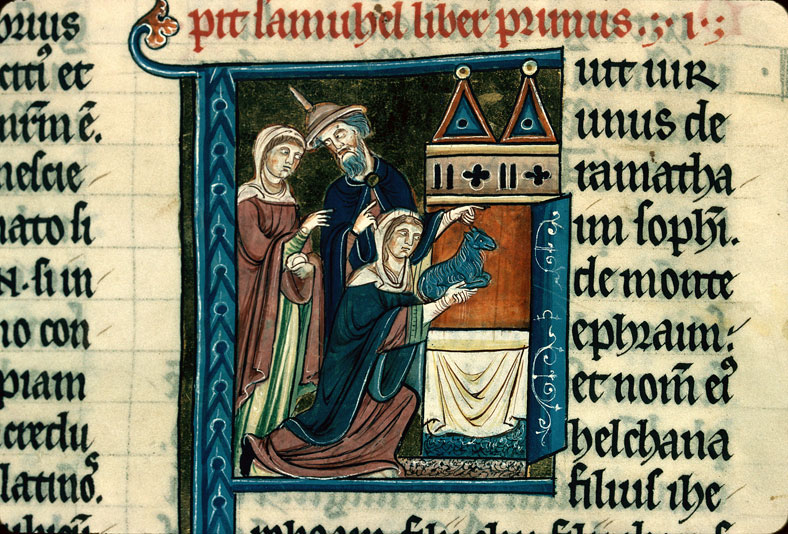 orius
citiꝰ et
nr̄m ē.
nescie
nato si
N. si in
no con
piam
credu
latinoꝝ.
pit samuhel liber primus .;. i .;
Fuit uir
unus de
ramatha
im sophī.
de monte
ephraim:
et nom̄ eiꝰ
helchana
filius ihe